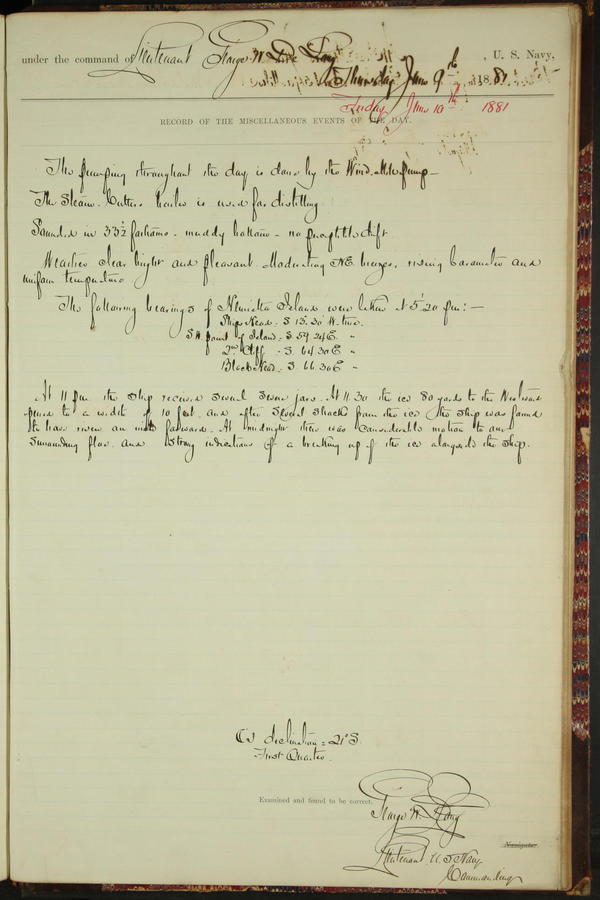 under the command of Lieutenant George W. De Long, U. S. Navy,
Thursday June 9th, 1881
Friday June 10th 1881
RECORD OF THE MISCELLANEOUS EVENTS OF THE DAY.
The pumping throughout the day is done by the Wind-Mill pump—
The Steam Cutters boiler is used for distilling
Sounded in 33½ fathoms - muddy bottom - no perceptible drift
Weather clear bright and pleasant. Moderating NE breezes, rising barometer and
uniform temperature
The following bearings of Henrietta Island were taken at 5.20 pm:—
Ship's Head - S 13.30 W. true.
S.W. point of Island - S 59.24 E "
2nd Cliff - S. 64.30 E "
Black Head - S 66.30 E "
At 11 pm the ship received several severe jars. At 11.30 the ice 80 yards to the Westward
opened to a width of 10 feet, and after several shocks from the ice the ship was found
to have risen an inch forward. At midnight there was considerable motion to our
surrounding floe, and strong indications of a breaking up of the ice alongside the ship.
declination = 21° S.
First Quarter.
Examined and found to be correct.
George W. De Long
Navigator
Lieutenant U.S Navy
Commanding